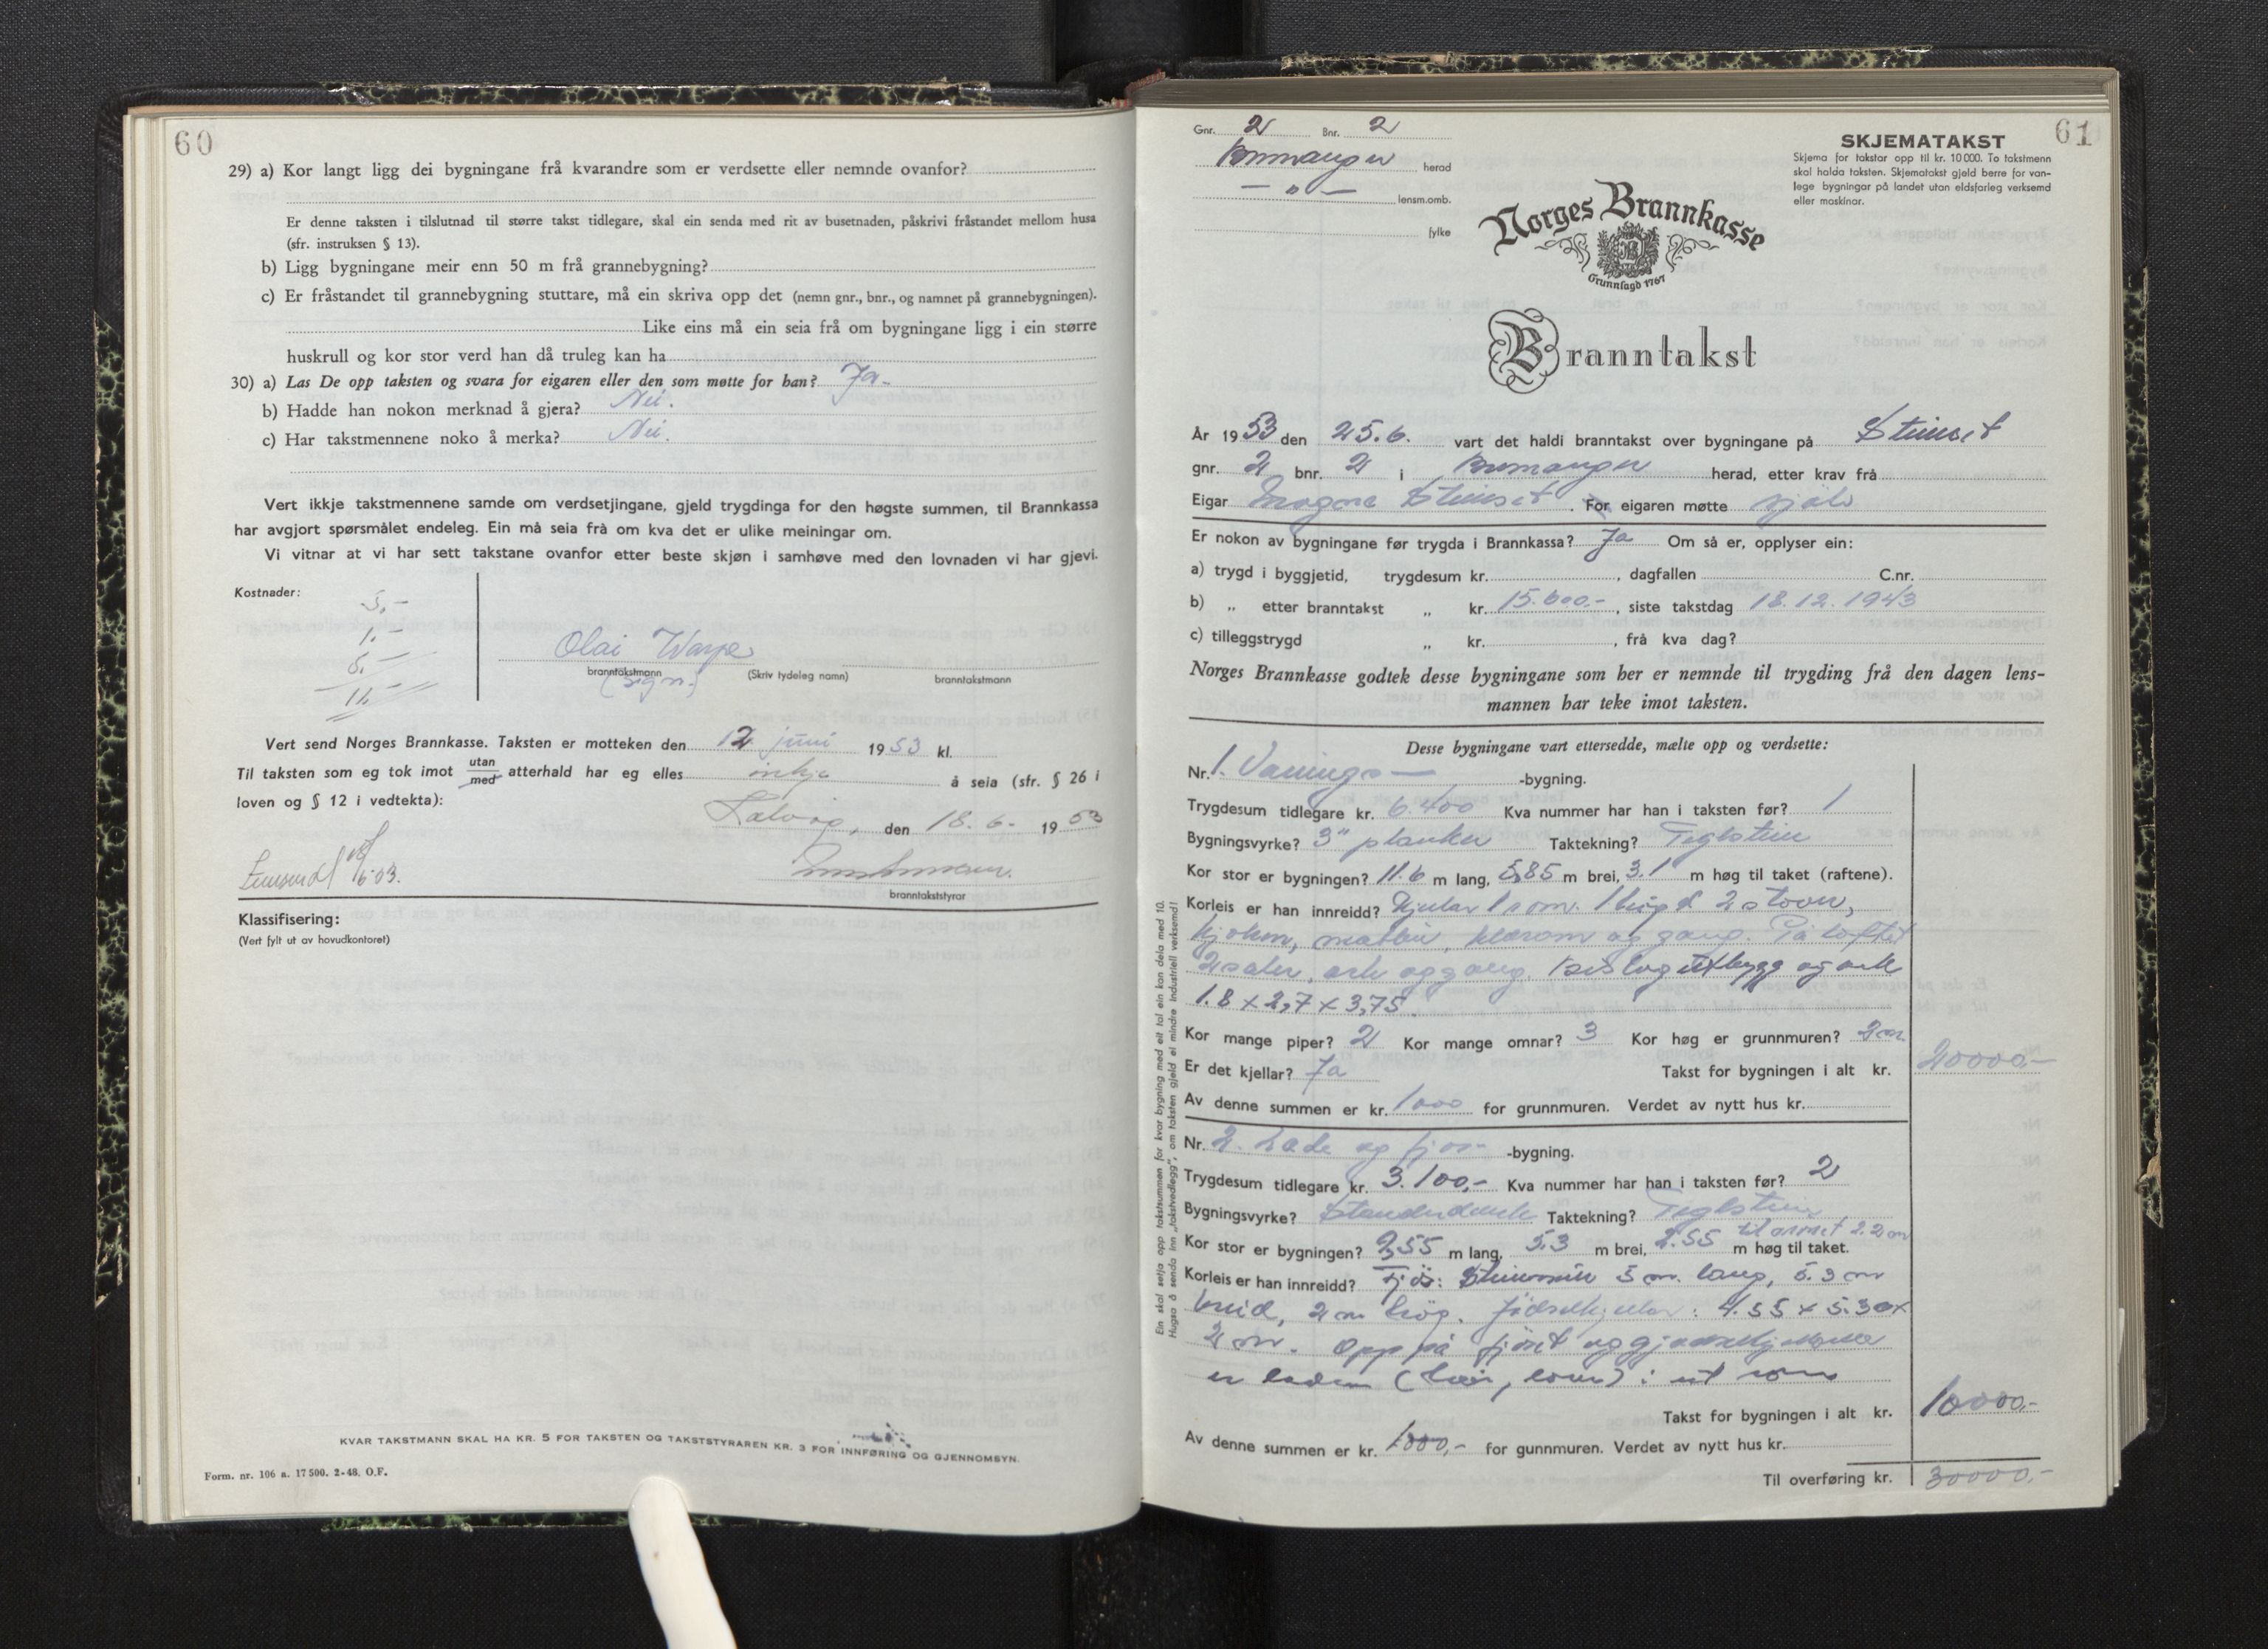 60
29) a) Kor langt ligg dei bygningane frå kvarandre som er verdsette eller nemnde ovanfor?
Er denne taksten i tilslutnad til større takst tidlegare, skal ein senda med rit av busetnaden, påskrivi fråstandet mellom husa
(sfr. instruksen § 13).
b) Ligg bygningane meir enn 50 m frå grannebygning?
c) Er fråstandet til grannebygning stuttare, må ein skriva opp det (nemn gnr., bnr., og namnet på grannebygningen).
Like eins må ein seia frå om bygningane ligg i ein større
huskrull og kor stor verd han då truleg kan ha
30) a) Las De opp taksten og svara for eigaren eller den som møtte for han? Ja.
b) Hadde han nokon merknad å gjera? Nei.
c) Har takstmennene noko å merka? Nei.
Vert ikkje takstmennene samde om verdsetjingane, gjeld trygdinga for den høgste summen, til Brannkassa
har avgjort spørsmålet endeleg. Ein må seia frå om kva det er ulike meiningar om.
Vi vitnar at vi har sett takstane ovanfor etter beste skjøn i samhøve med den lovnaden vi har gjevi.
Kostnader:
5,-
1.-
5.-
11.-
Olai Warpe
branntakstmann (Skriv tydeleg namn) branntakstmann
(sign.)
Vert send Norges Brannkasse. Taksten er motteken den 12 juni 1953 kl.
Til taksten som eg tok imot utan/med atterhald har eg elles inkje å seia (sfr. § 26 i
loven og § 12 i vedtekta):
Kalvåg, den 18.6- 1953
branntakststyrar
Klassifisering:
(Vert fylt ut av hovudkontoret)
KVAR TAKSTMANN SKAL HA KR. 5 FOR TAKSTEN OG TAKSTSTYRAREN KR. 3 FOR INNFØRING OG GJENNOMSYN.
Form. nr. 106 a. 17500. 2-48. O.F.
61
Gnr. 2 Bnr. 2
Bremanger herad
— " — lensm.omb.
fylke
SKJEMATAKST
Skjema for takstar opp til kr. 10 000. To takstmenn
skal halda taksten. Skjematakst gjeld berre for van-
lege bygningar på landet utan eldsfarleg verksemd
eller maskinar.
Norges Brannkasse
Grunnlagd 1767
Branntakst
År 1953 den 25.6. vart det haldi branntakst over bygningane på Steinset
gnr. 2 bnr. 2 i Bremanger herad, etter krav frå
Eigar Magne Steinset. For eigaren møtte sjølv
Er nokon av bygningane før trygda i Brannkassa? Ja Om så er, opplyser ein:
a) trygd i byggjetid, trygdesum kr. , dagfallen C.nr.
b) „ etter branntakst „ kr. 15.600,-, siste takstdag 18.12.1943
c) tilleggstrygd „ kr. , frå kva dag?
Norges Brannkasse godtek desse bygningane som her er nemnde til trygding frå den dagen lens-
mannen har teke imot taksten.
Desse bygningane vart ettersedde, mælte opp og verdsette:
Nr. 1. Vånings— -bygning.
Trygdesum tidlegare kr. 6.400 Kva nummer har han i taksten før? 1
Bygningsvyrke? 3" planker Taktekning? Teglstein
Kor stor er bygningen? 11.6 m lang, 5,85 m brei, 3.1 m høg til taket (raftene).
Korleis er han innreidd? Kjellar 1 rom. 1 høgd 2 stover,
kjøken, matbu, klerom og gang. På loftet
2 saler, ark og gang. utbygg og ark
1.8 x 2,7 x 3,75.
Kor mange piper? 2 Kor mange omnar? 3 Kor høg er grunnmuren? 2 m
Er det kjellar? Ja Takst for bygningen i alt kr. 20000,-
Av denne summen er kr. 1000 for grunnmuren. Verdet av nytt hus kr.
Nr. 2. Løde og fjøs- -bygning.
Trygdesum tidlegare kr. 3.100,- Kva nummer har han i taksten før? 2
Bygningsvyrke? Taktekning? Teglstein
Kor stor er bygningen? 9,55 m lang, 5.3 m brei, 2.55 m høg til taket. 2.2 m
Korleis er han innreidd? Fjøs: Steinmur 5 m. lang, 5.3 m
breid, 2 m høg. : 4.55 x 5.30 x
2 m. Opp på fjøset og
er løden (høy, korn) i eit rom
Takst for bygningen i alt kr. 10000,-
Av denne summen er kr. 1000,- for gunnmuren. Verdet av nytt hus kr.
Til overføring kr. 30000,-
Ein skal setja opp takstsummen for kvar bygning med eit tal ein kan dela med 10.
Hugsa å senda inn „takstvedlegg", om taksten gjeld ei mindre industriell verksemd!